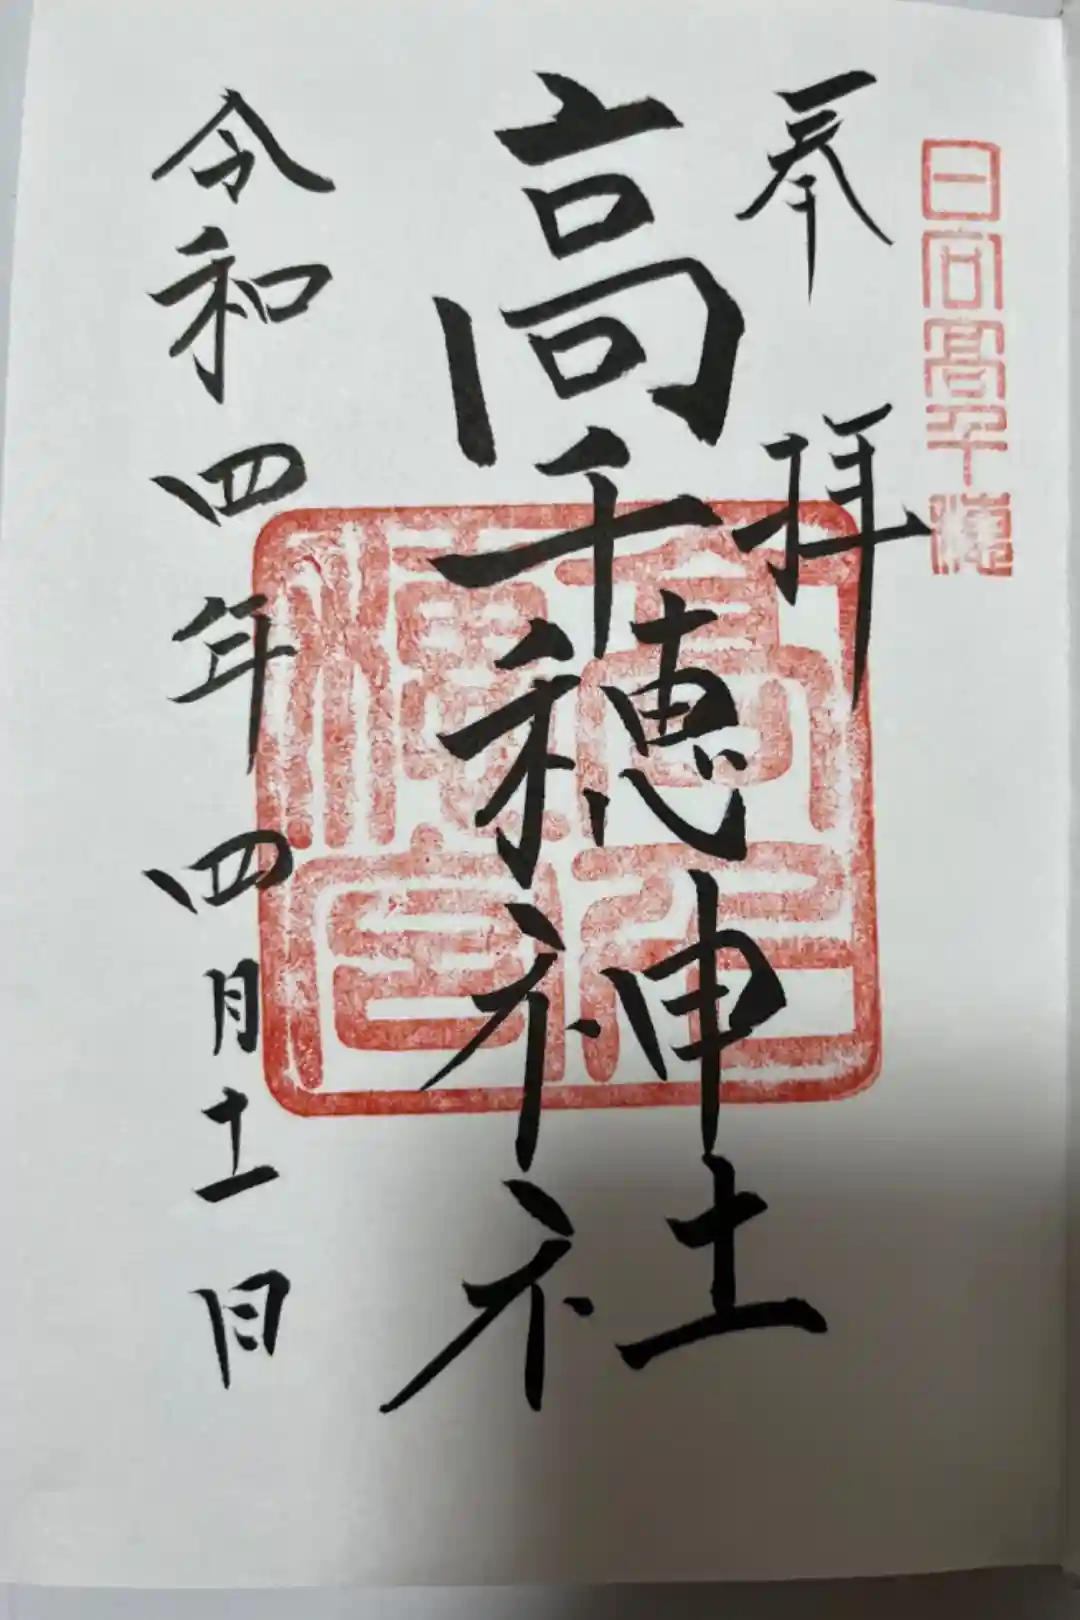 日向高千穂
奉拝
高千穂神社
高千穂宮
令和四年四月十一日